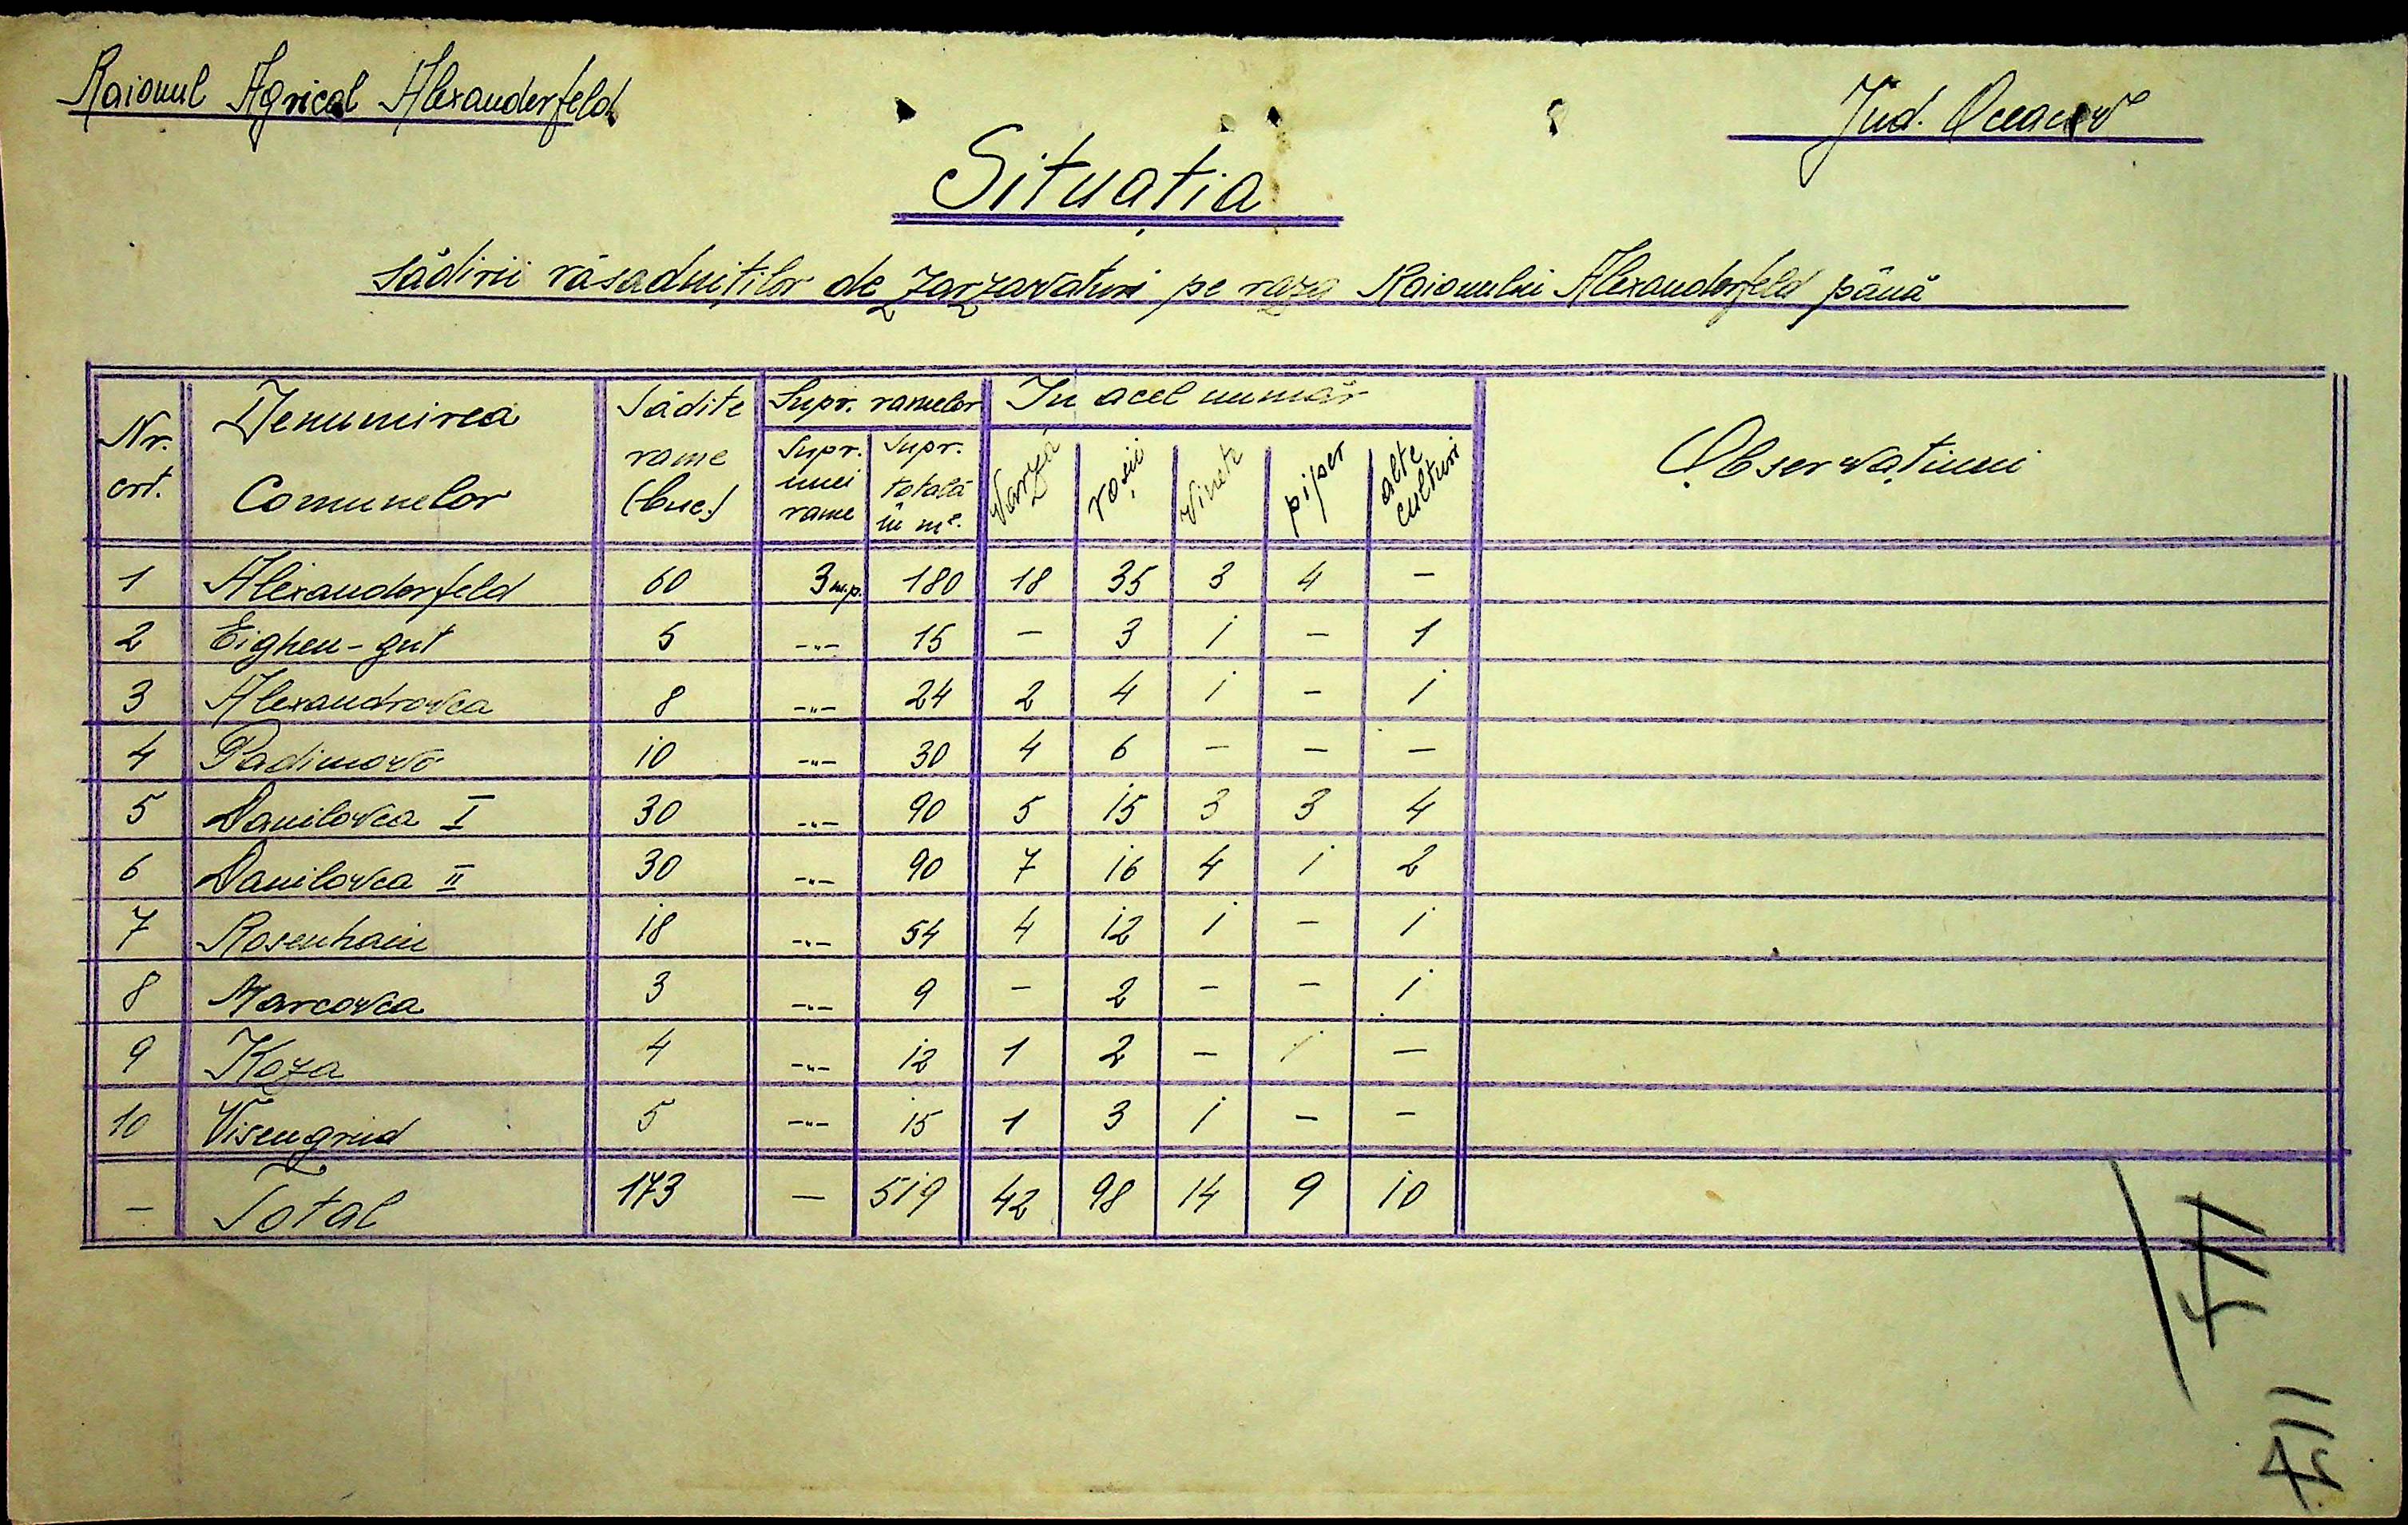 Raionul Agricol Alexanderfeld
Jud. Oceacov
Situația
sădirii răsadniților de zarzavaturi pe raza Raionului Alexanderfeld până
Nr. crt. Denumirea Comunelor Sădite rame (buc.) Supr. ramelor In acel număr Observațiuni
Supr. unei rame Supr. totală în m². Varză roșii vinete piper alte culturi
1 Alexanderfeld 60 3 m.p. 180 18 35 3 4 -
2 Eighen-gut 5 -"- 15 - 3 1 - 1
3 Alexandrovca 8 -"- 24 2 4 1 - 1
4 Padimovo 10 -"- 30 4 6 - - -
5 Danilovca I 30 -"- 90 5 15 3 3 4
6 Danilovca II 30 -"- 90 7 16 4 1 2
7 Rosenhain 18 -"- 54 4 12 1 - 1
8 Marcovca 3 -"- 9 - 2 - - 1
9 Koza 4 -"- 12 1 2 - 1 -
10 Visengrud 5 -"- 15 1 3 1 - -
- Total 173 - 519 42 98 14 9 10